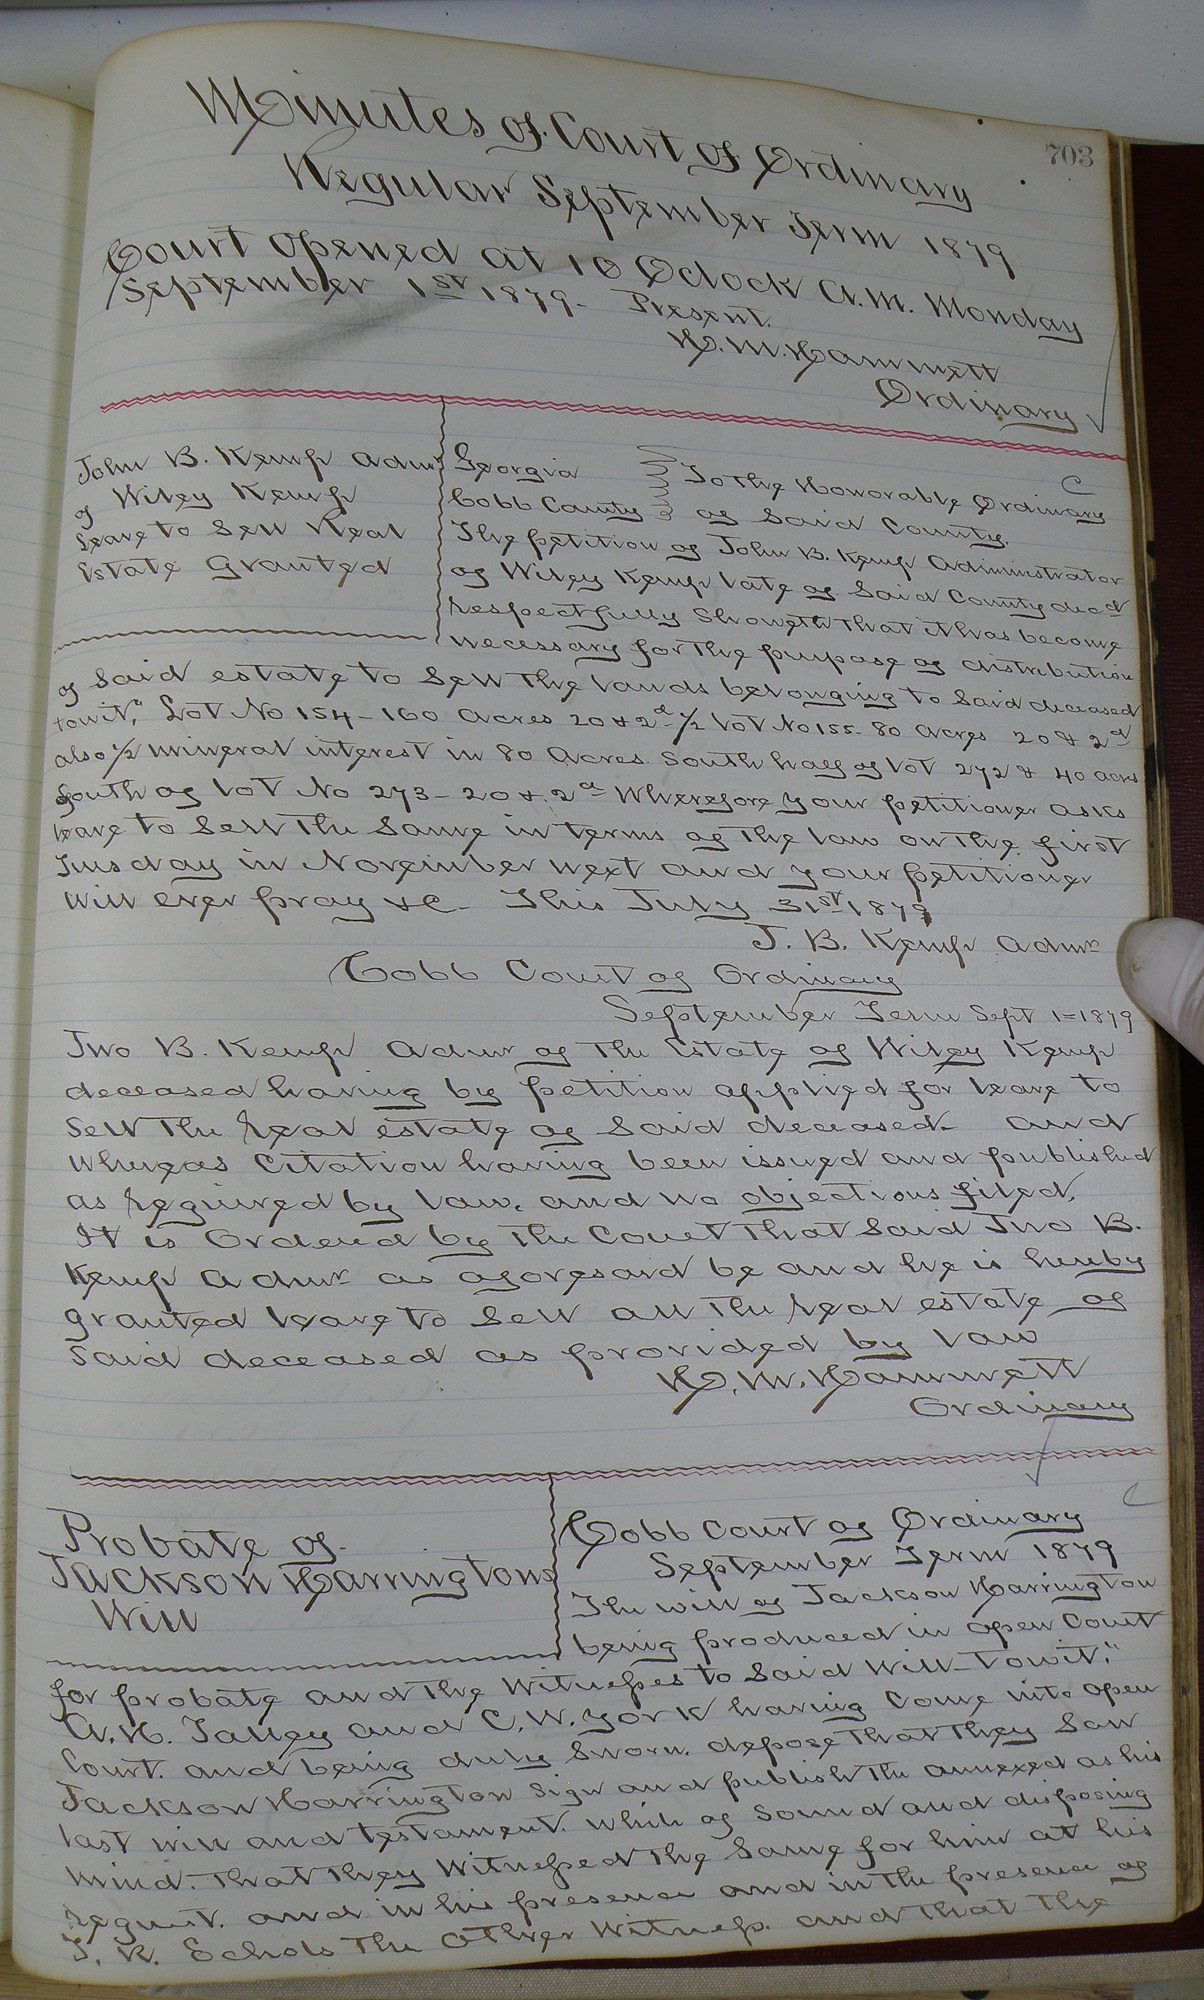 703
Minutes of Court of Ordinary
Regular September Term 1879
Court opened at 10 Oclock A.M. Monday
September 1st 1879 - Present.
H. M. Hammett
Ordinary
John B. Kemp Admr
of Wiley Kemp
Leave to Sell Real
Estate Granted
Georgia To the Honorable Ordinary
Cobb County of Said County.
The petition of John B. Kemp Administrator
of Wiley Kemp late of Said County decd
respectfully Showeth that it has become
necessary for the purpose of distribution
of Said estate to Sell the lands belonging to Said deceased
towit," Lot No 154 - 160 Acres 20 & 2d 1/2 lot No 155 - 80 Acres 20 & 2d
also 1/2 mineral interest in 80 Acres South half of lot 272 & 40 acres
South of lot No 273 - 20 & 2d Wherefore your petitioner asks
leave to Sell the Same in terms of the law on the first
Tuesday in November next and your petitioner
will ever pray &c - This July 31st 1879
J. B. Kemp Admr
Cobb Court of Ordinary
September Term Sept 1 = 1879
Jno B. Kemp Admr of the Estate of Wiley Kemp
deceased having by petition applied for leave to
Sell the real estate of Said deceased - and
whereas Citation having been issued and published
as required by law, and no objections filed,
It is Ordered by the Court that Said Jno B.
Kemp Admr as aforesaid be and he is hereby
granted leave to Sell all the real estate of
Said deceased as provided by law
H. M. Hammett
Ordinary
C
C
Probate of
Jackson Harringtons
Will
Cobb Court of Ordinary
September Term 1879
The will of Jackson Harrington
being produced in open Court
for probate and the Witnesses to Said Will - Towit,"
A. H. Talley and C. W. York having Come into open
Court. and being duly Sworn. depose that they Saw
Jackson Harrington Sign and publish the annexed as his
last will and testament. while of Sound and disposing
mind. that they Witnessed the Same for him at his
request. and in his presence and in the presence of
J. R. Echols the other Witness. and that the